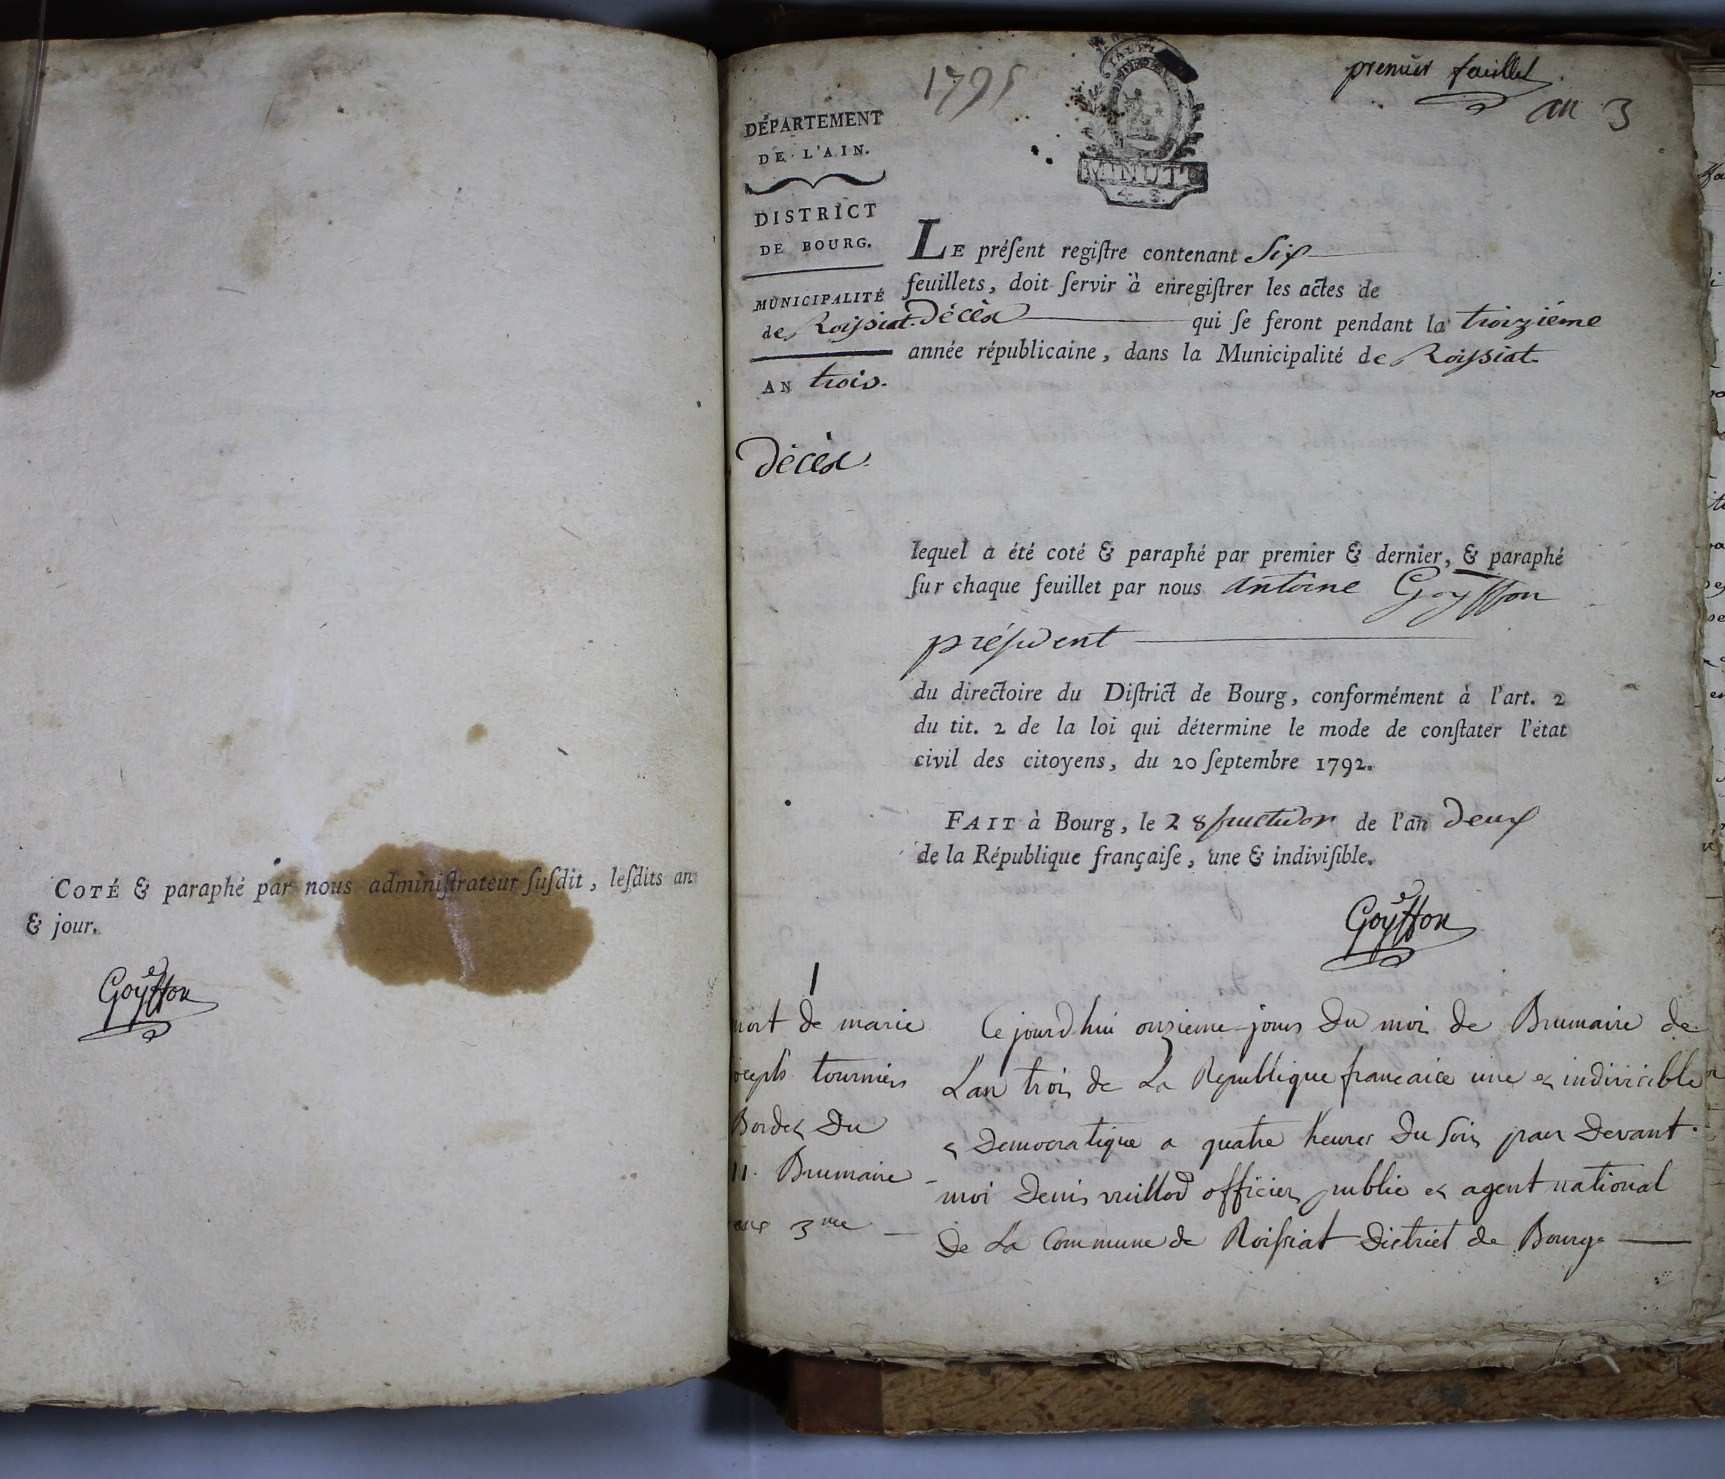 COTÉ & paraphé par nous adminiſtrateur ſuſdit, leſdits an
& jour.
Goyffon
1795
premier feuillet
an 3
MINUTE
DÉPARTEMENT
DE L'AIN.
DISTRICT
DE BOURG.
MUNICIPALITÉ
de Roissiat.
AN trois.
décès.
LE préſent regiſtre contenant Six
feuillets, doit ſervir à enregiſtrer les actes de
décès qui ſe feront pendant la troizième
année républicaine, dans la Municipalité de Roissiat
lequel a été coté & paraphé par premier & dernier, & paraphé
ſur chaque feuillet par nous antoine Goyffon
préſident
du directoire du Diſtrict de Bourg, conformément à l'art. 2
du tit. 2 de la loi qui détermine le mode de conſtater l'état
civil des citoyens, du 20 ſeptembre 1792.
FAIT à Bourg, le 28 fructidor de l'an deux
de la République françaiſe, une & indiviſible.
Goyffon
1
mort de marie
joseph tournier
Bordet du
11. Brumaire
3me
Cejourdhui onzieme jours du moi de Brumaire de
Lan trois de La Republique francaice une et indivicible
et Democratique a quatre heures du soir par devant
moi denis vuillod officier public et agent national
de La Commune de Roissiat District de Bourg